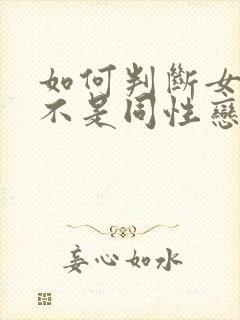 如何判斷女
不是同性戀
妄心如水